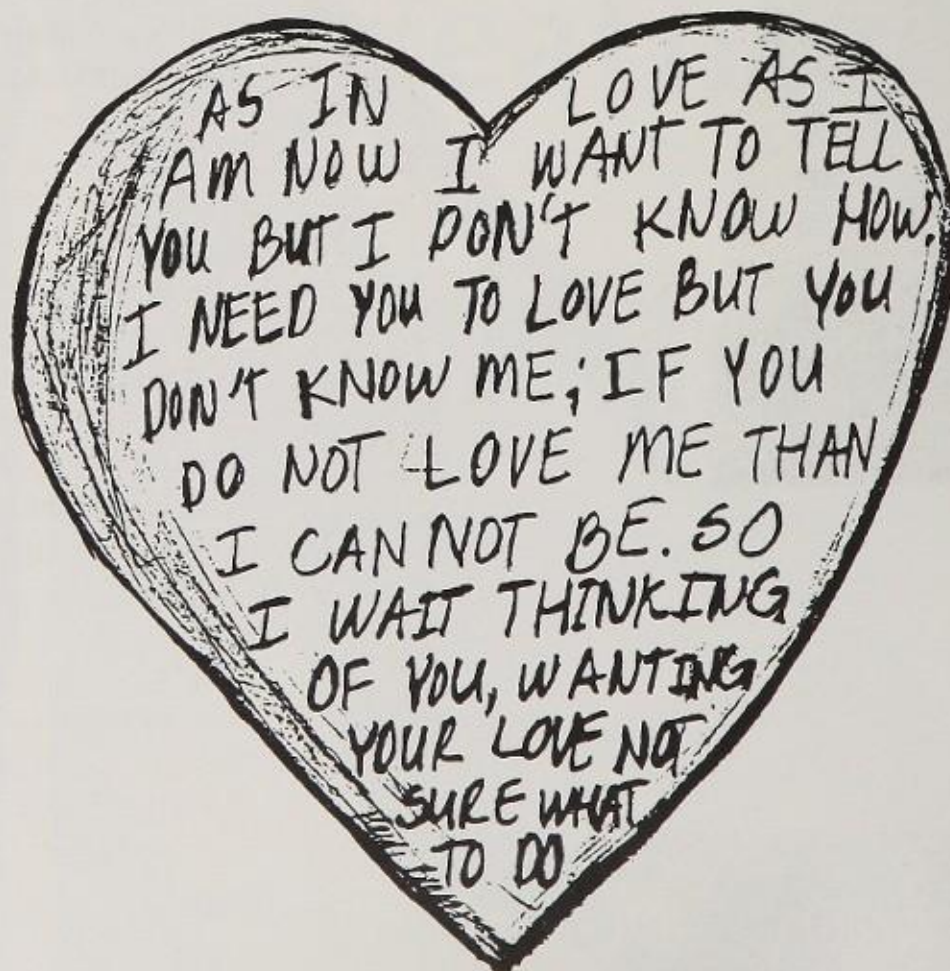 AS IN LOVE AS I
AM NOW I WANT TO TELL
YOU BUT I DON'T KNOW HOW.
I NEED YOU TO LOVE BUT YOU
DON'T KNOW ME; IF YOU
DO NOT LOVE ME THAN
I CAN NOT BE. SO
I WAIT THINKING
OF YOU, WANTING
YOUR LOVE NOT
SURE WHAT
TO DO